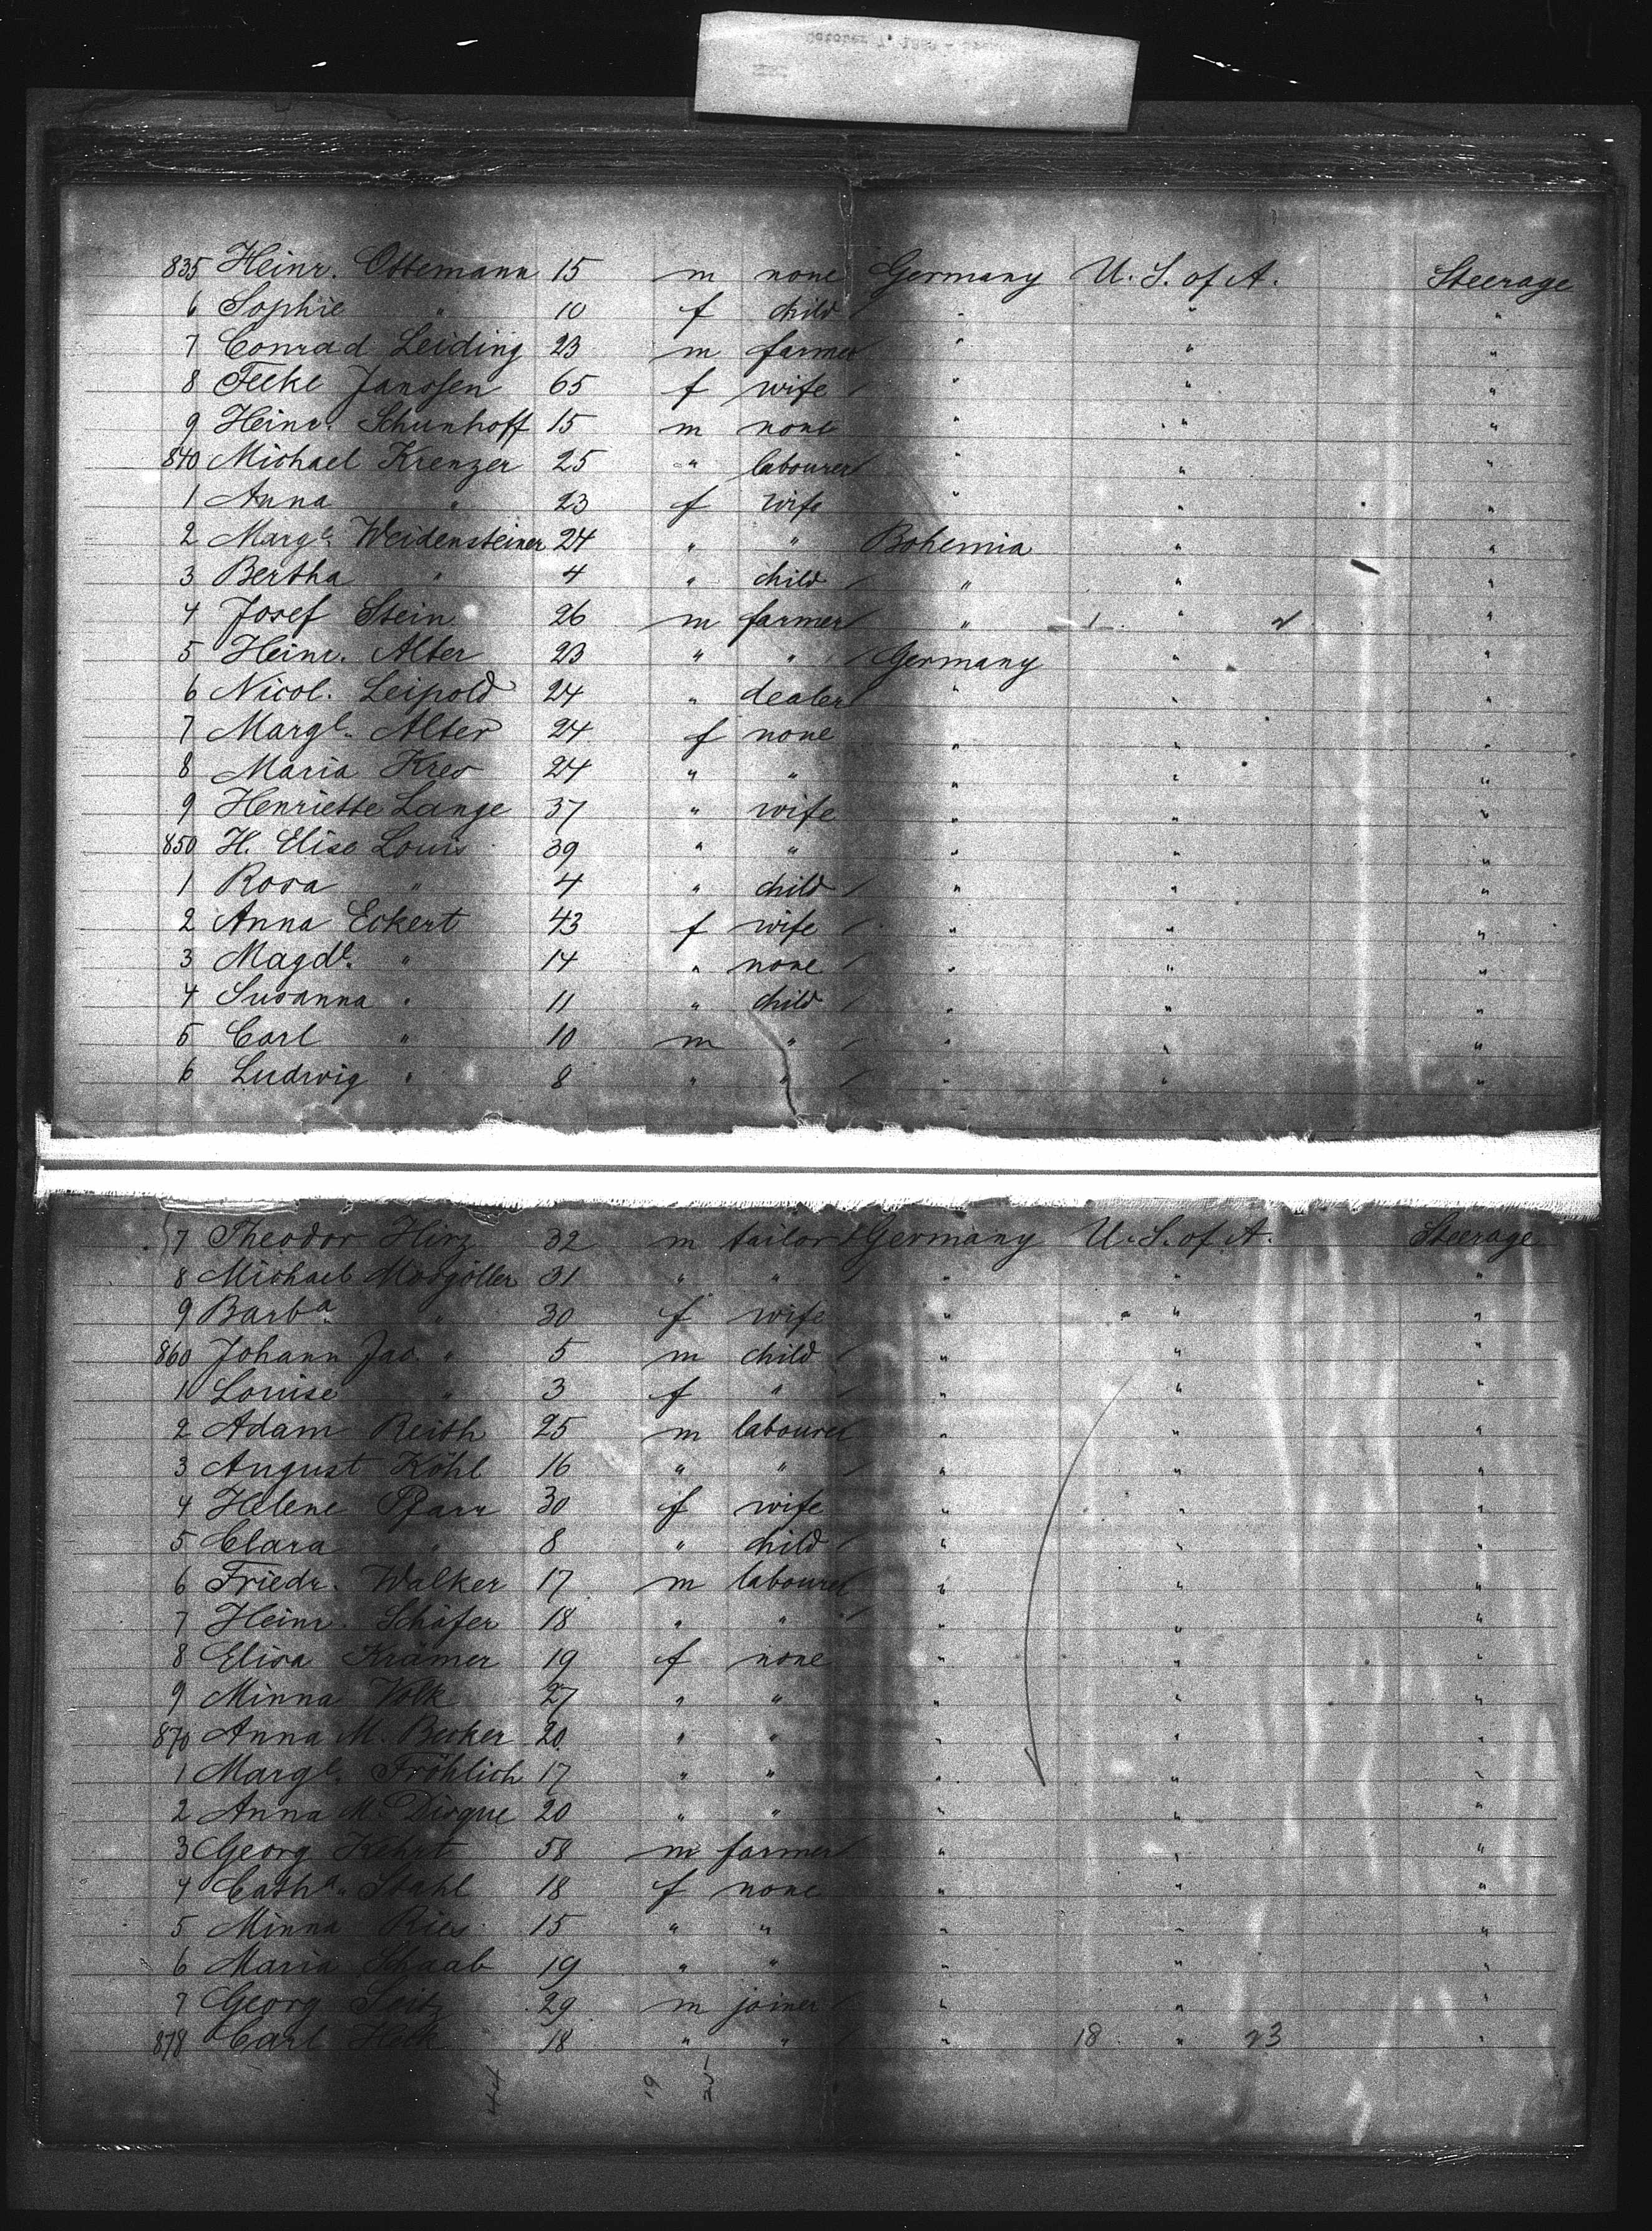 835 Heinr. Ottemann 15 m none Germany U. S. of A. Steerage
6 Sophie " 10 f child " " "
7 Conrad Leiding 23 m farmer " " "
8 Feeke Janssen 65 f wife " " "
9 Heinr. Schunhoff 15 m none " " "
840 Michael Krenzer 25 " labourer " " "
1 Anna " 23 f wife " " "
2 Marge. Weidensteiner 24 " " Bohemia " "
3 Bertha " 4 " child " " "
4 Josef Stein 26 m farmer " 1 " 2 "
5 Heinr. Alter 23 " " Germany " "
6 Nicol. Leipold 24 " dealer " " "
7 Marge. Alter 24 f none " " "
8 Maria Kres 24 " " " " "
9 Henriette Lange 37 " wife " " "
850 H. Elise Louis 39 " " " " "
1 Rosa " 4 " child " " "
2 Anna Eckert 43 f wife " " "
3 Magde. " 14 " none " " "
4 Susanna " 11 " child " " "
5 Carl " 10 m " " " "
6 Ludwig " 8 " " " " "
7 Theodor Hirz 32 m tailor Germany U. S. of A. Steerage
8 Michael 31 " " " " "
9 Barba. " 30 f wife " " "
860 Johann Jac. " 5 m child " " "
1 Louise " 3 f " " " "
2 Adam Reith 25 m labourer " " "
3 August Köhl 16 " " " " "
4 Helene Pfarr 30 f wife " " "
5 Clara " 8 " child " " "
6 Friedr. Walker 17 m labourer " " "
7 Heinr. Schäfer 18 " " " " "
8 Elisa Krämer 19 f none " " "
9 Minna Volk 27 " " " " "
870 Anna M. Becker 20 " " " " "
1 Marge. Fröhlich 17 " " " " "
2 Anna M. Disque 20 " " " " "
3 Georg Kehrt 58 m farmer " " "
4 Catha. Stahl 18 f none " " "
5 Minna Ries 15 " " " " "
6 Maria Schaab 19 " " " " "
7 Georg Seitz 29 m joiner " " "
878 Carl Heck 18 " " " 18 " 23 "
44 19 25